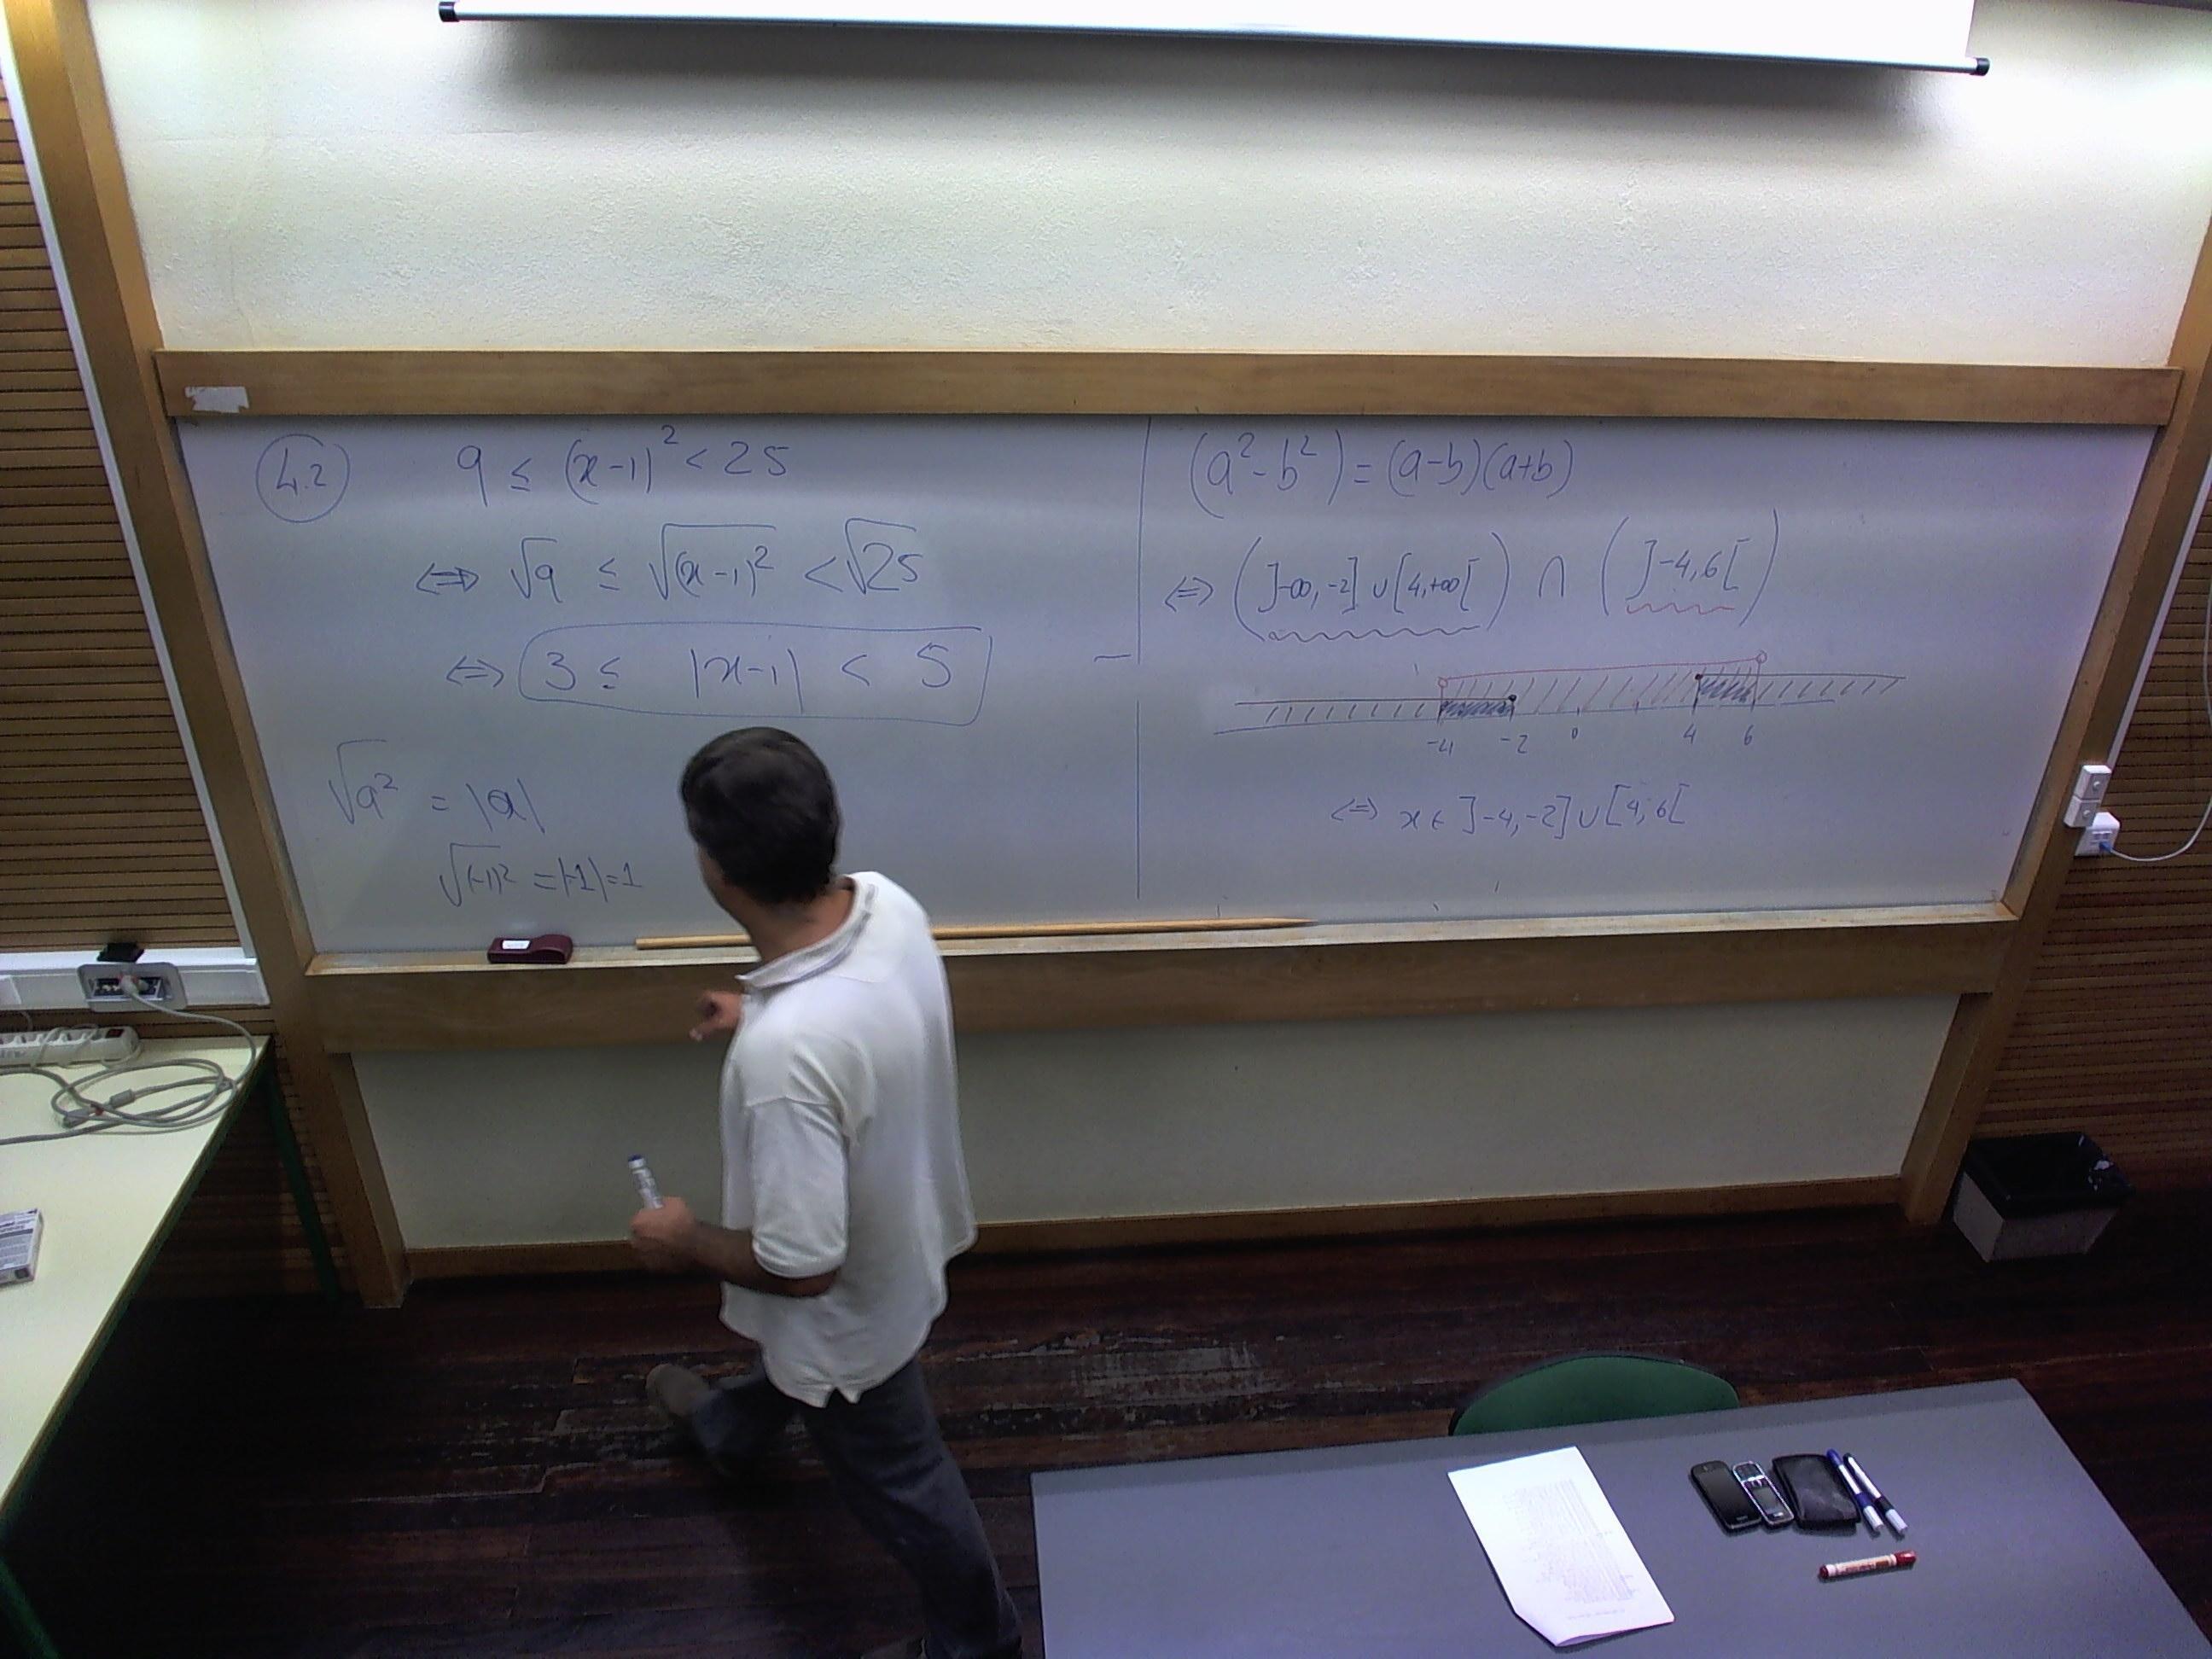 4.2
9 ≤ (x-1)² < 25
⇔ √9 ≤ √(x-1)² < √25
⇔ 3 ≤ |x-1| < 5
√a² = |a|
√(-1)² = |-1| = 1
(a²-b²) = (a-b)(a+b)
⇔ (]-∞,-2] ∪ [4,+∞[) ∩ (]-4,6[)
-4 -2 0 4 6
⇔ x ∈ ]-4,-2] ∪ [4,6[